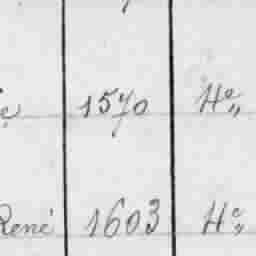 1570 He„
René 1603 He„